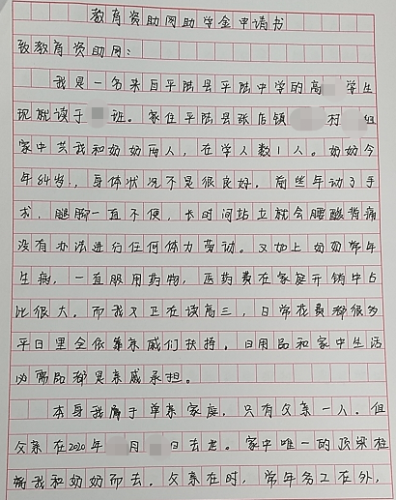 教育资助网助学金申请书
致教育资助网:
我是一名来自平陆县平陆中学的高 学生
现就读于 班。家住平陆县张店镇 村
家中共我和奶奶两人,在学人数1人。奶奶今
年84岁,身体状况不是很良好,前些年动了手
术,腿脚一直不便,长时间站立就会腰酸背痛
没有办法进行任何体力劳动。又加上奶奶常年
生病,一直服用药物,医药费在家庭开销中占
比很大。而我又正在读高三,日常花费都很多
平日里全依靠亲戚们扶持,日用品和家中生活
必需品都是亲戚承担。
本身我属于单亲家庭,只有父亲一人。但
父亲在2020年 月 日去世。家中唯一的顶梁柱
离我和奶奶而去。父亲在时,常年务工在外,